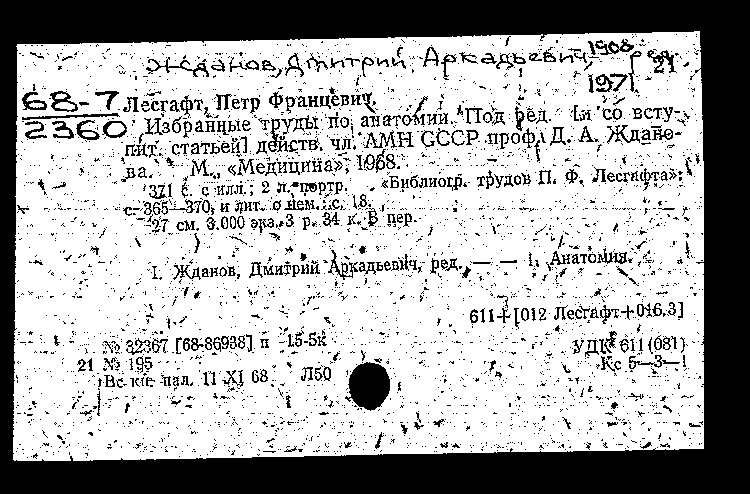 Жданов, Дмитрий Аркадьевич, 1908 ред.
21
1971
68-7
2360
Лесгафт, Петр Францевич.
Избранные труды по анатомии. Под ред. [и со всту-
пит. статьей] действ. чл. АМН СССР проф. Д. А. Ждано-
ва. М., «Медицина», 1968.
371 с. с илл.; 2 л. портр. «Библиогр. трудов П. Ф. Лесгафта»:
с. 365—370, и лит. о нем: с. 18.
27 см. 3.000 экз. 3 р. 34 к. В пер.
I. Жданов, Дмитрий Аркадьевич, ред. — — 1. Анатомия.
611+[012 Лесгафт+016.3]
№ 32367 [68-86938] п 15-5к
УДК 611(081)
21 № 195
Кс 5—3—1
Вс. кн. пал. 11 XI 68 Л50